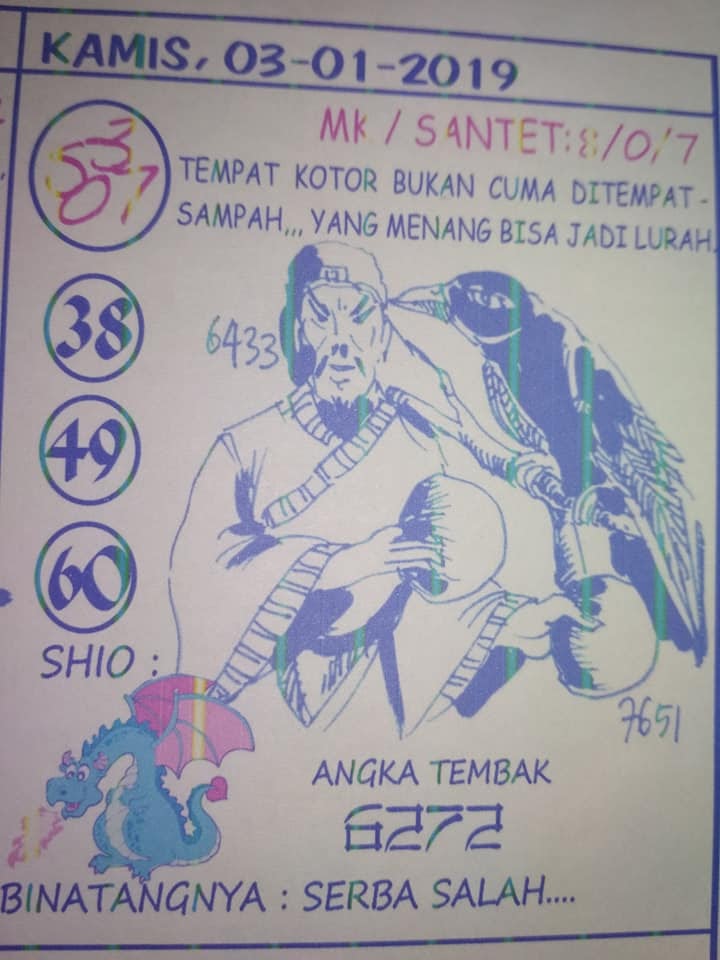 KAMIS, 03-01-2019
MK / SANTET: 8/0/7
TEMPAT KOTOR BUKAN CUMA DITEMPAT-
SAMPAH,,, YANG MENANG BISA JADI LURAH.
38
6433
49
60
SHIO :
7651
ANGKA TEMBAK
6272
BINATANGNYA : SERBA SALAH....